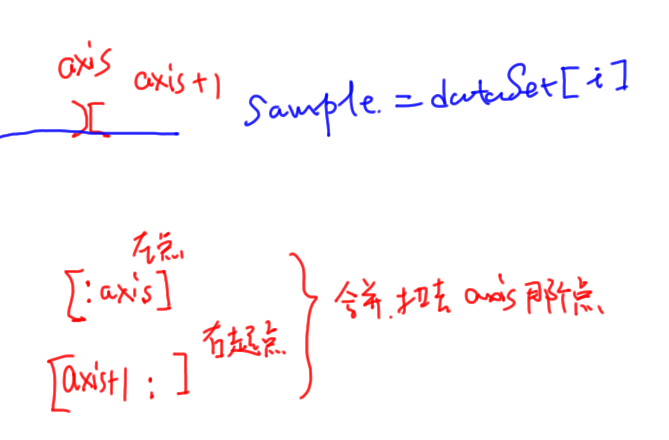 axis
axis+1
Sample = dataSet[i]
)[
[:axis]
右起点
[axis+1 : ]
合并.扣去 axis 那个点